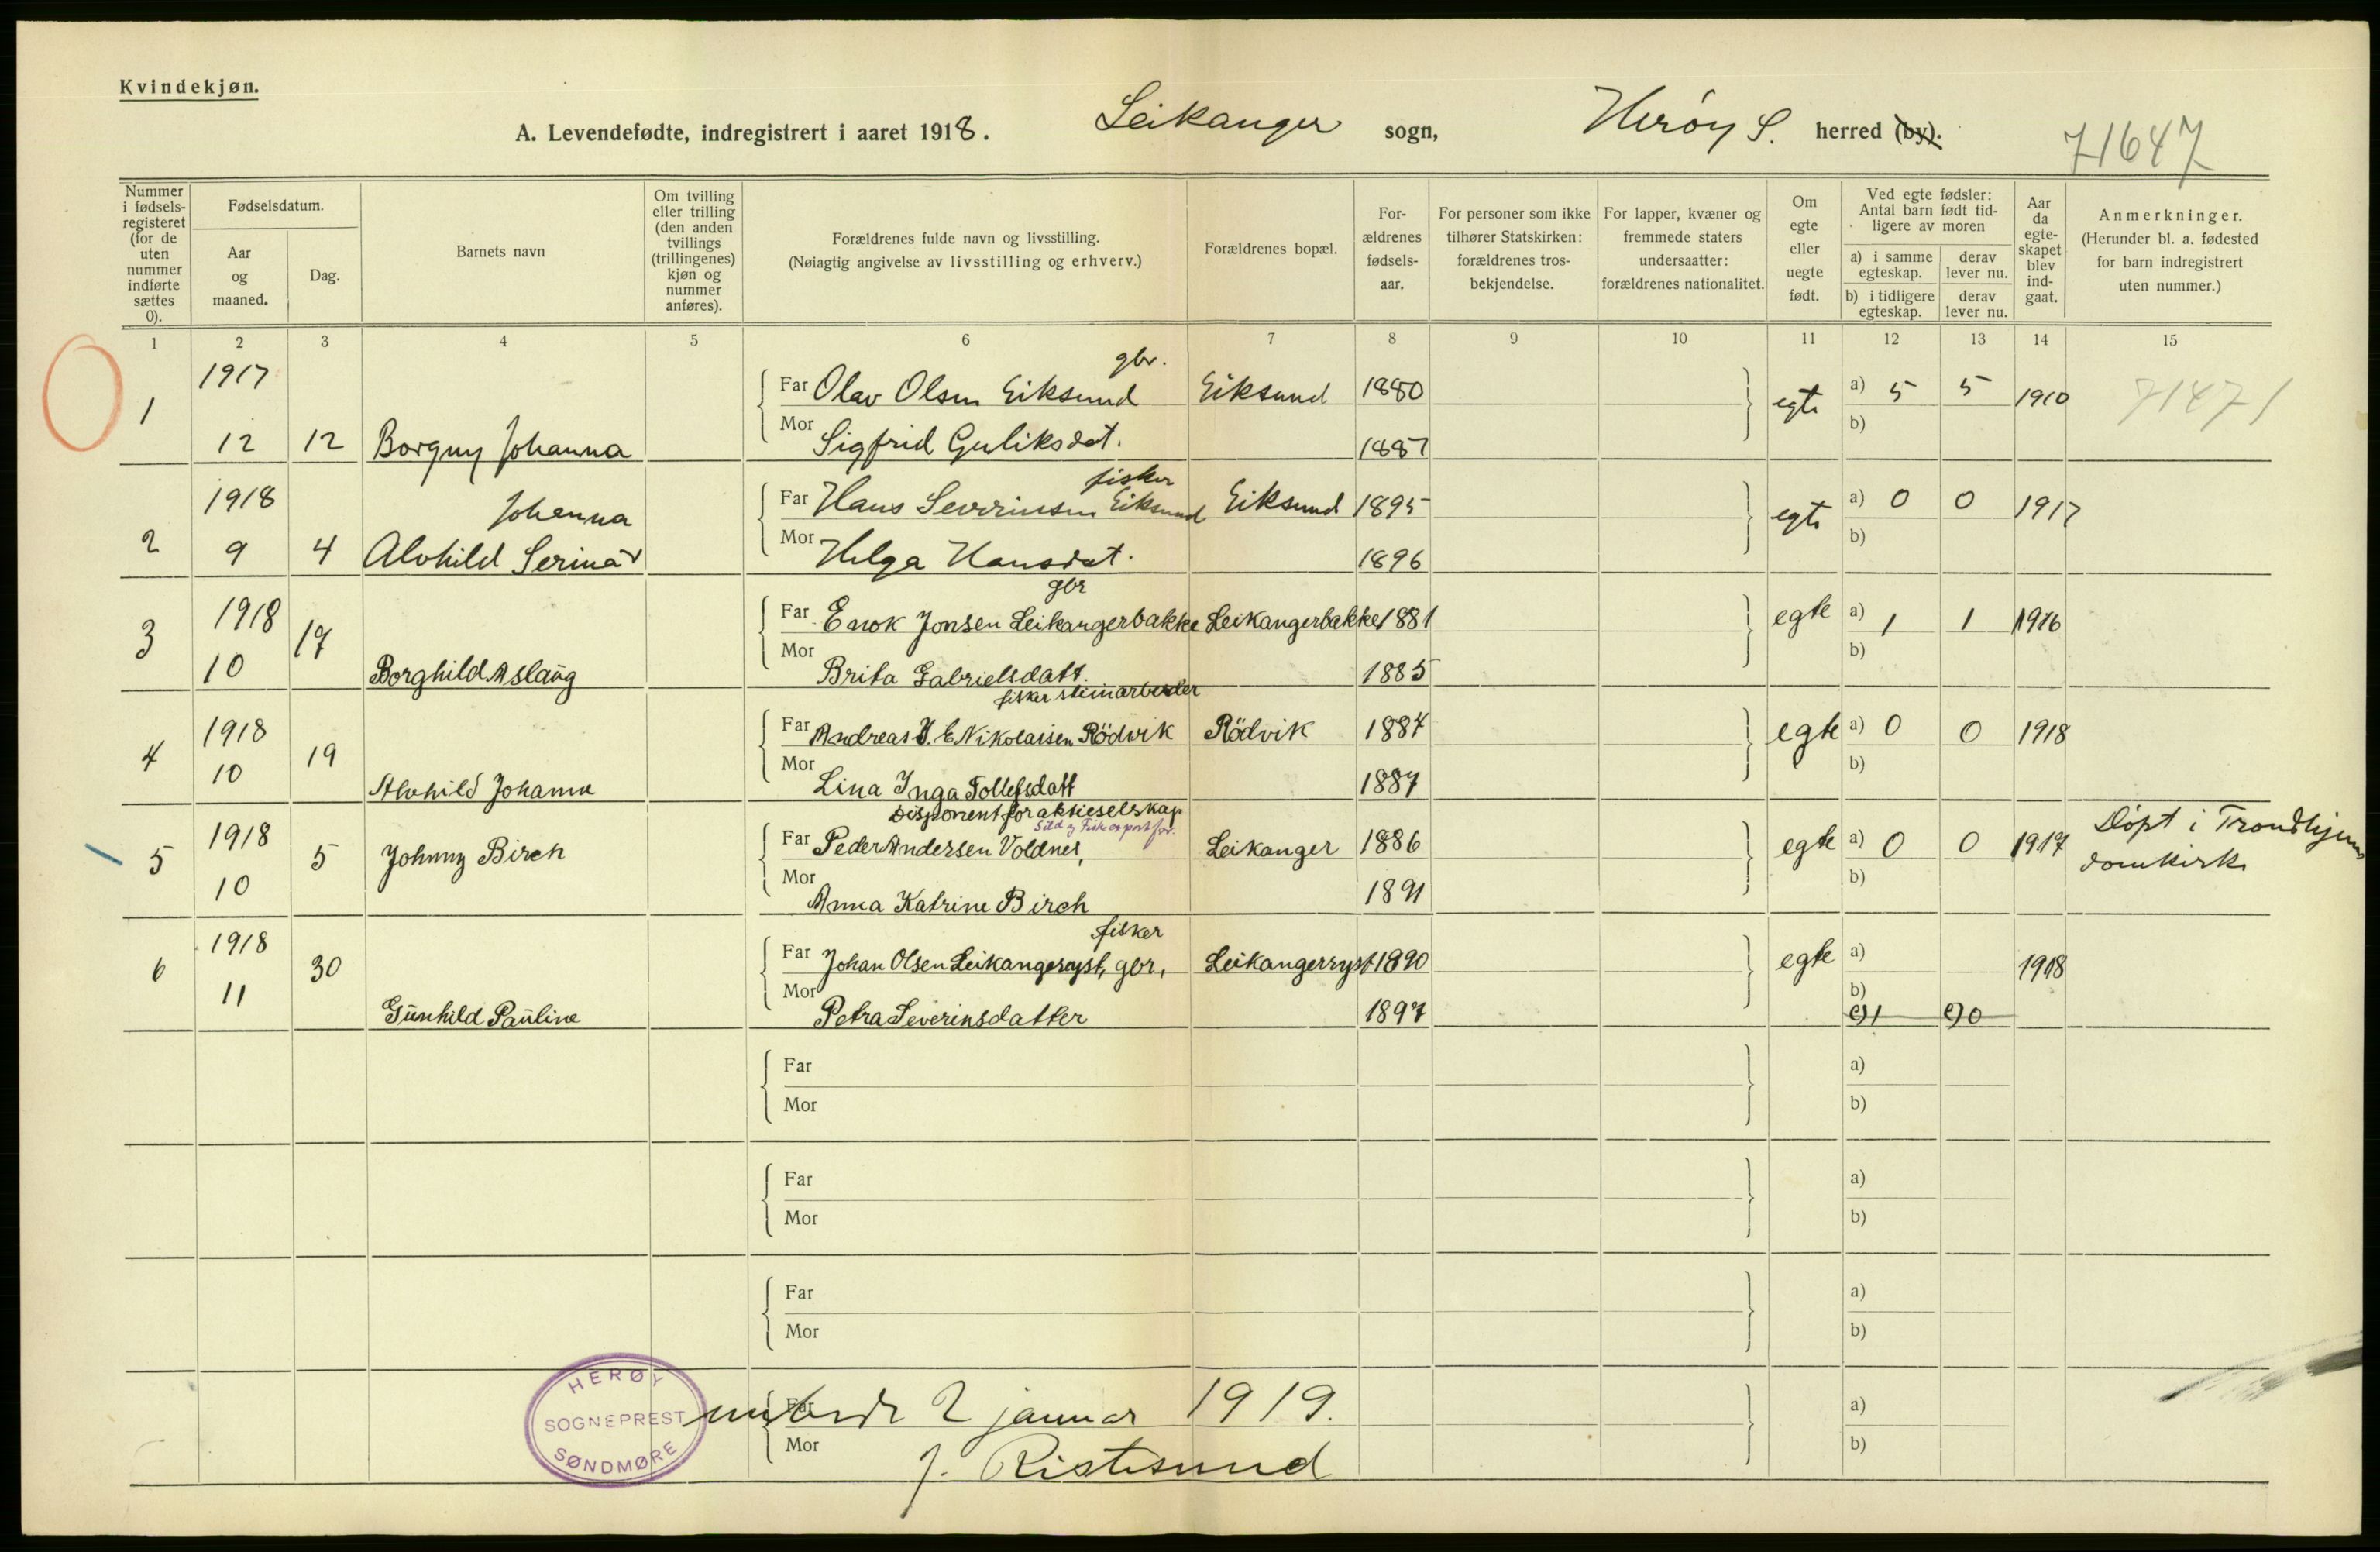 Kvindekjøn.
A. Levendefødte, indregistrert i aaret 1918. Leikanger sogn, Herøy S. herred (by).
71647
Nummer i fødsels-registeret (for de uten nummer indførte sættes 0).
Fødselsdatum.
Aar og maaned.
Dag.
Barnets navn
Om tvilling eller trilling (den anden tvillings (trillingenes) kjøn og nummer anføres).
Forældrenes fulde navn og livsstilling.
(Nøiagtig angivelse av livsstilling og erhverv.)
Forældrenes bopæl.
For-ældrenes fødsels-aar.
For personer som ikke tilhører Statskirken: forældrenes tros-bekjendelse.
For lapper, kvæner og fremmede staters undersaatter: forældrenes nationalitet.
Om egte eller uegte født.
Ved egte fødsler: Antal barn født tid-ligere av moren
a) i samme egteskap.
derav lever nu.
b) i tidligere egteskap.
derav lever nu.
Aar da egte-skapet blev ind-gaat.
Anmerkninger.
(Herunder bl. a. fødested for barn indregistrert uten nummer.)
1 2 3 4 5 6 7 8 9 10 11 12 13 14 15
gbr.
1 1917 Far Olav Olsen Eiksund Eiksund 1880 egte a) 5 5 1910 71471
12 12 Borgny Johanna Mor Sigfrid Guliksdat. 1887 b)
fisker
2 1918 Johanna Far Hans Severinsen Eiksund Eiksund 1895 egte a) 0 0 1917
9 4 Alvhild Serina Mor Helga Hansdat. 1896 b)
gbr
3 1918 17 Far Enok Jonsen Leikangerbakke Leikangerbakke 1881 egte a) 1 1 1916
10 Borghild Aslaug Mor Brita Gabrielsdatt. 1885 b)
fisker steinarbeider
4 1918 19 Far Andreas J. E. Nikolaisen Rödvik Rödvik 1887 egte a) 0 0 1918
10 Alvhild Johanne Mor Lina Inga Tollefsdatt 1887 b)
Disponent for aktieselskap
5 1918 5 Johnny Birch Far Peder Andersen Voldnes, Leikanger 1886 egte a) 0 0 1917 Döpt i Trondhjems
10 Mor Anna Katrine Birch 1891 b) domkirke
fisker
6 1918 30 Far Johan Olsen Leikangerryst, gbr, Leikangerryst 1890 egte a) 1918
11 Gunhild Pauline Mor Petra Severinsdatter 1897 b)
Far a)
Mor b)
Far a)
Mor b)
Far a)
Mor b)
HERØY SOGNEPREST SØNDMØRE
Far 2 januar 1919. a)
Mor J. Ristesund b)